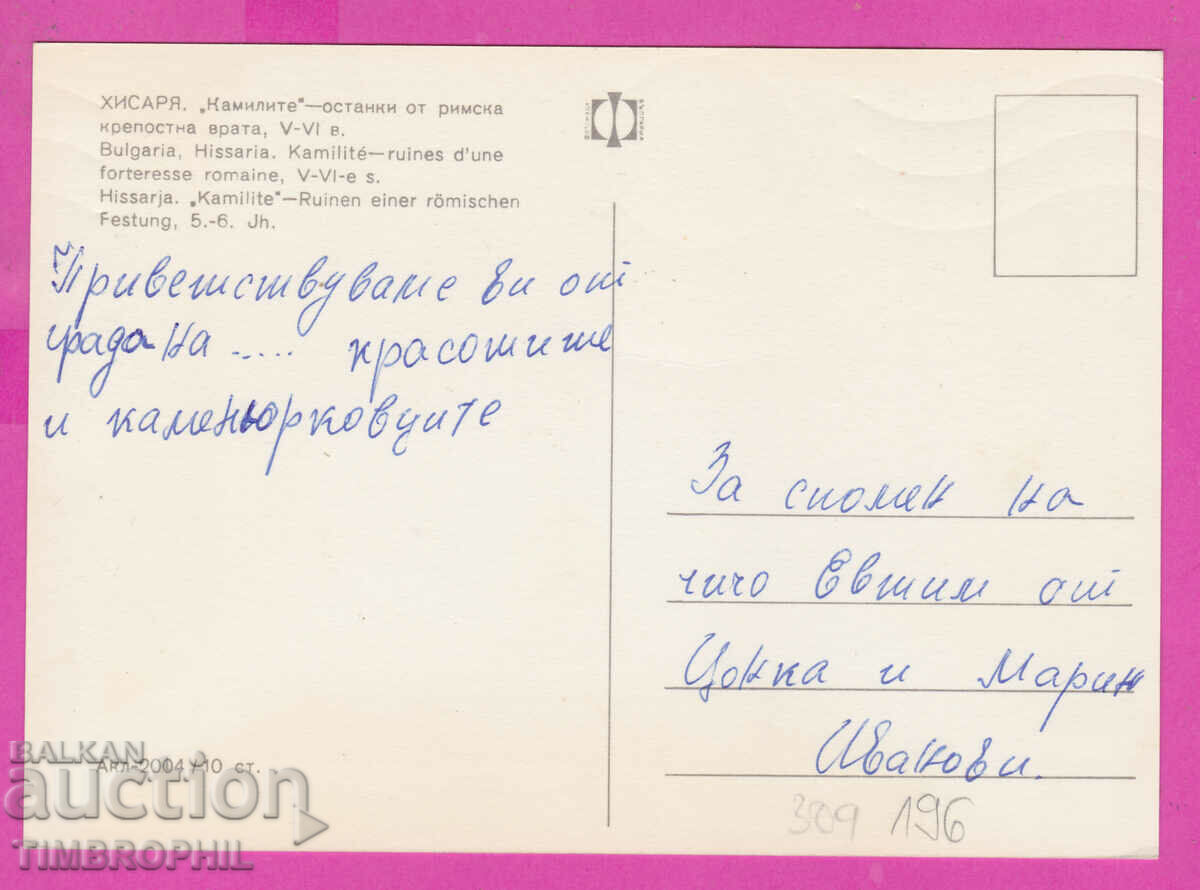 ХИСАРЯ. „Камилите"—останки от римска
крепостна врата, V-VI в.
Bulgaria, Hissaria. Kamilité—ruines d'une
forteresse romaine, V-VI-e s.
Hissarja. „Kamilite"—Ruinen einer römischen
Festung, 5.-6. Jh.
Приветствуваме ви от
града на ..... красотите
и каменюрковците
За спомен на
чичо Евтим от
Цонка и Марин
Иванови.
Акл-2004/10 ст.
309 196
BALKAN
auction
TIMBROPHIL